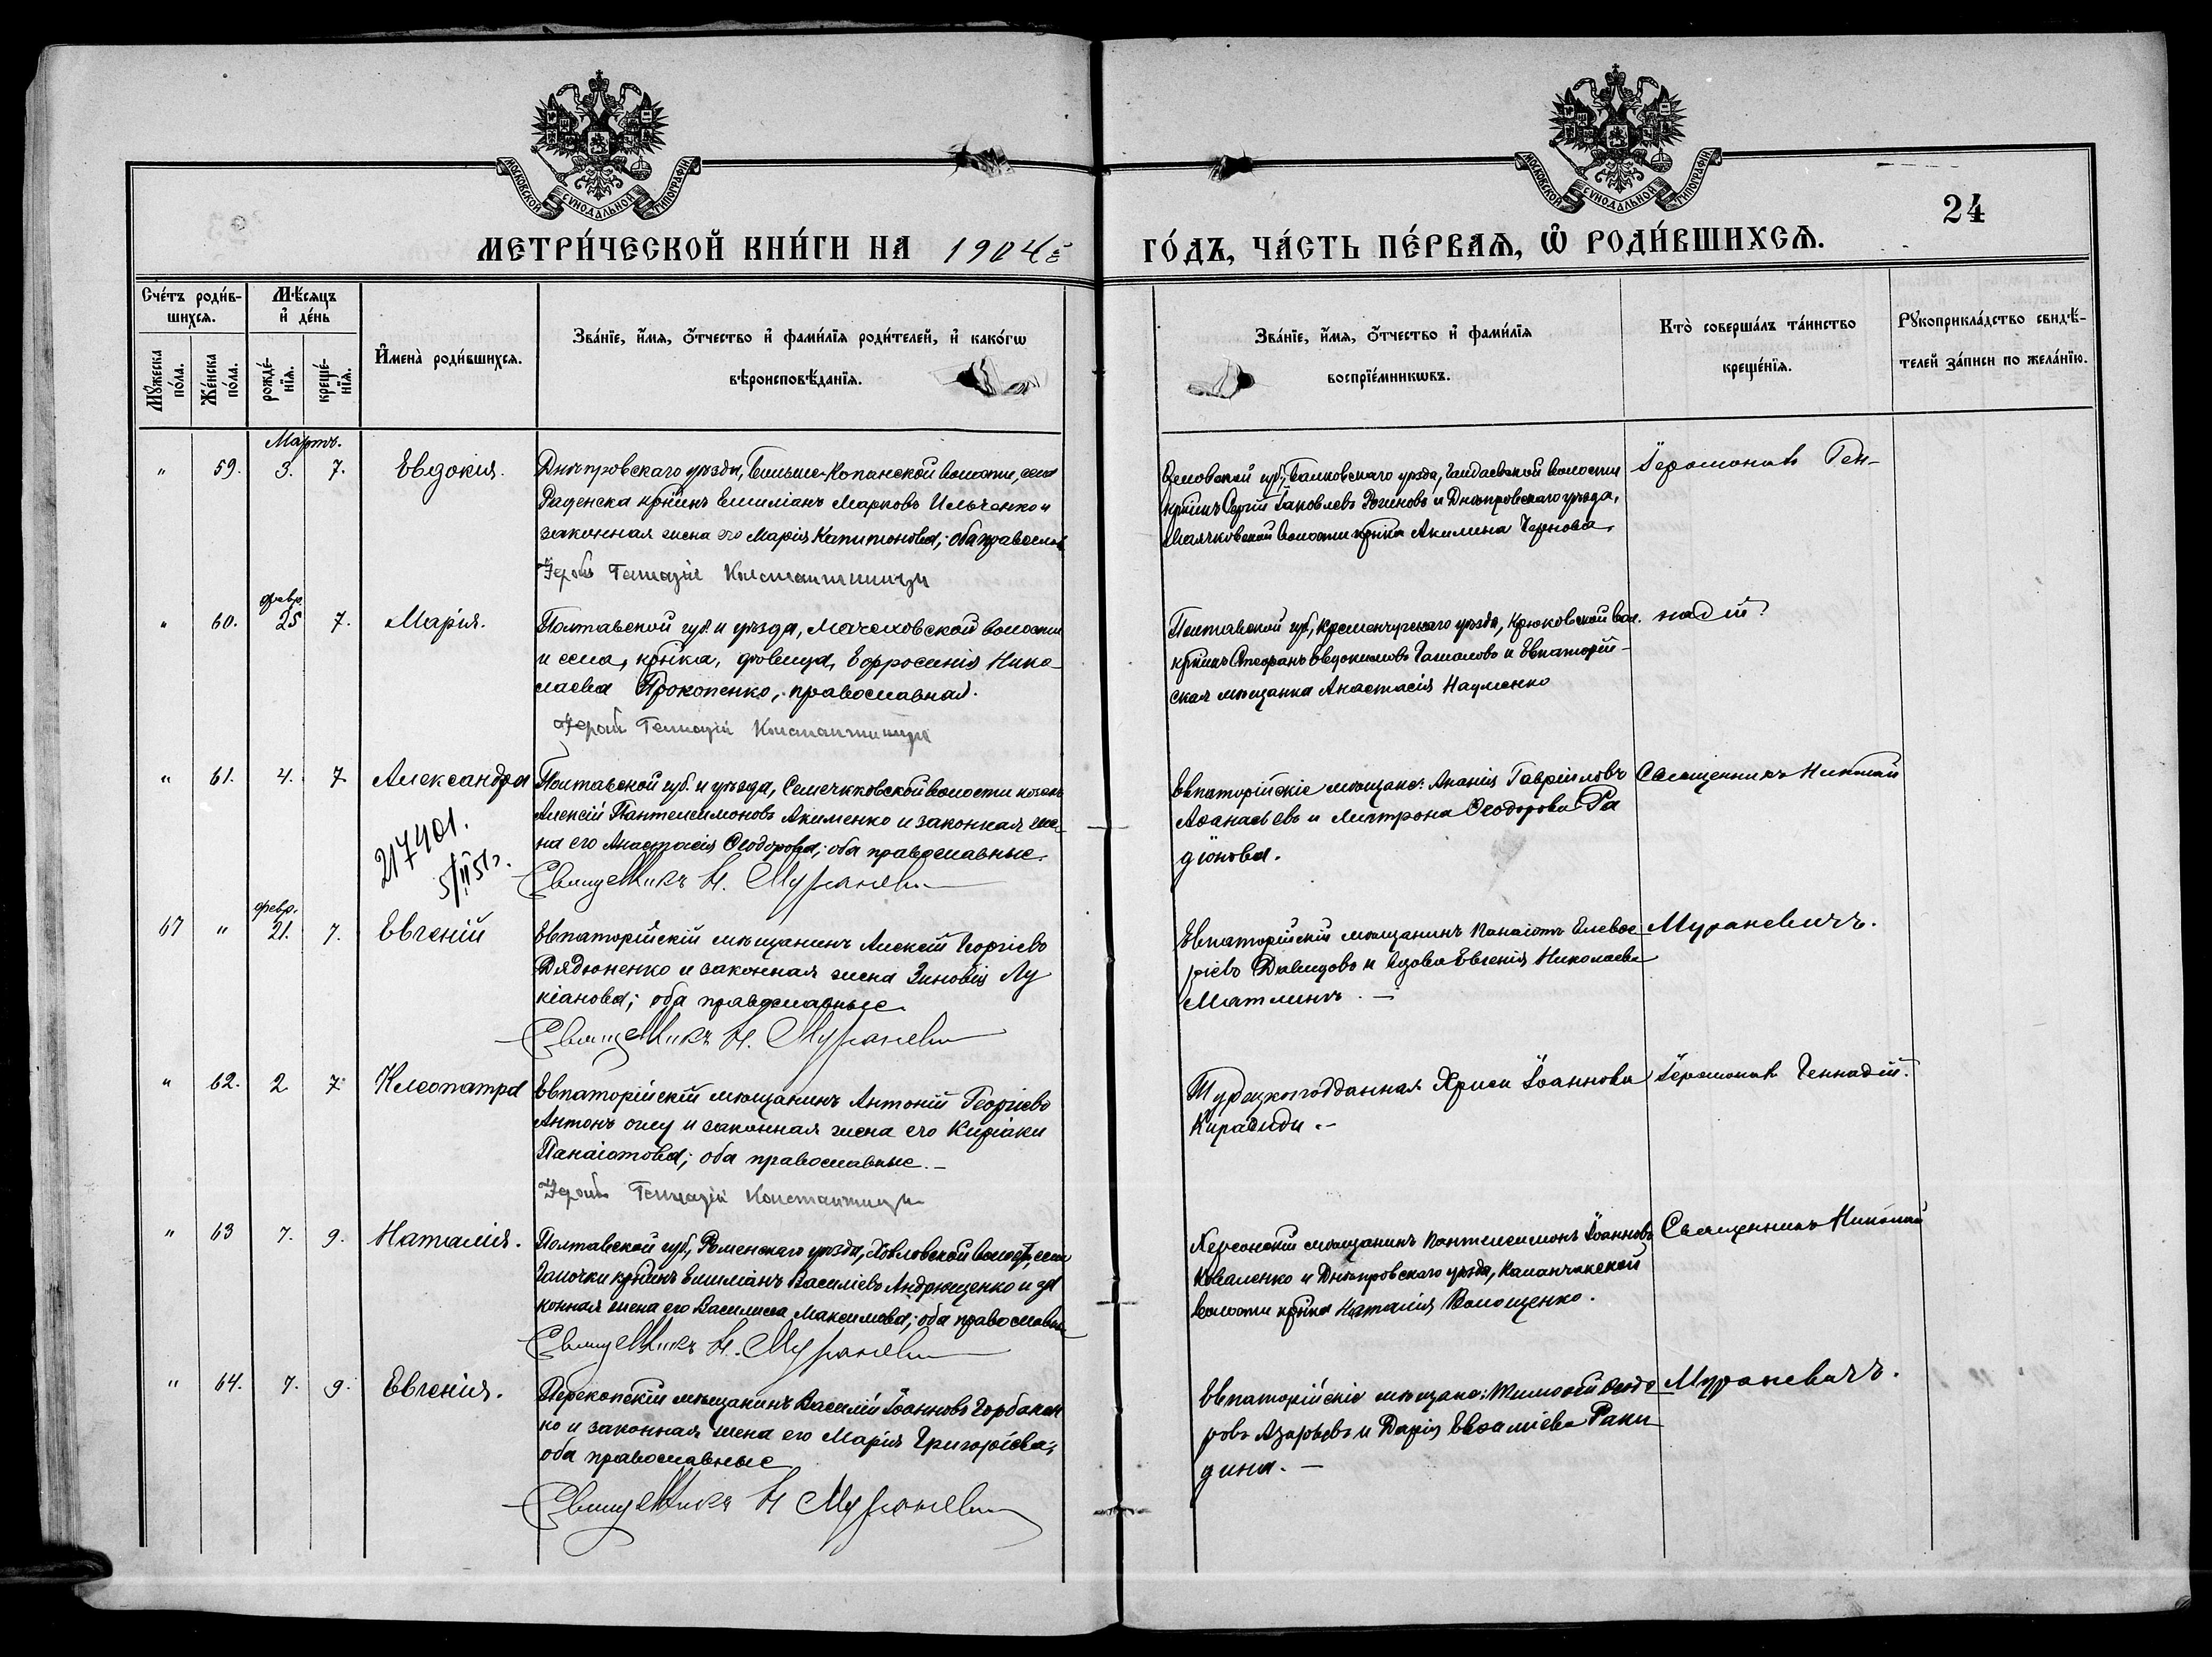 МОСКОВСКОЙ СУНОДАЛЬНОЙ ТИПОГРАФІИ
МОСКОВСКОЙ СУНОДАЛЬНОЙ ТИПОГРАФІИ
24
МЕТРИ́ЧЕСКОЙ КНИ́ГИ НА 1904й ГО́ДЪ, ЧА́СТЬ ПЕ́РВАѦ, Ѡ҆ РОДИ́ВШИХСѦ.
Сче́тъ роди́в-
шихсѧ.
Мѣ́сѧцъ
и҆ де́нь
Мꙋ́жеска по́ла.
Же́нска по́ла.
рожде́-
нїѧ.
креще́-
нїѧ.
И҆мена̀ роди́вшихсѧ.
Зва́нїе, и҆́мѧ, ѻ҆́тчество и҆ фами́лїѧ роди́телей, и҆ како́гѡ
вѣроисповѣ́данїѧ.
Зва́нїе, и҆́мѧ, ѻ҆́тчество и҆ фами́лїѧ
воспрїе́мникѡвъ.
Кто̀ соверша́лъ та́инство
креще́нїѧ.
Рꙋкоприкла́дство свидѣ́-
телей за́писи по жела́нїю.
Мартъ.
" 59. 3. 7. Евдокія.
Днѣпровскаго уѣзда, Больше-Копанской волости, села
Раденска кр-нинъ Емиліанъ Марковъ Ильченко и
законная жена его Марія Капитонова; оба православ
Іером. Геннадій
уѣзда, волости
Іаковлевъ и Днѣпровскаго уѣзда,
Маячковской волости Акилина Чернова.
Іеромонахъ Ген-
февр.
" 60. 25 7. Марія.
Полтавской губ. и уѣзда, Мачеховской волости
и села, кр-нка, дѣвица, Евфросинія Нико-
лаева Прокопенко, православная.
Іером. Геннадій
Полтавской губ., Кременчугскаго уѣзда, Крюковской вол.
Стефанъ Евдокимовъ и Евпаторій-
ская мѣщанка Анастасія Науменко
надій.
" 61. 4. 7. Александра
Полтавской губ. и уѣзда, волости козакъ
Алексій Пантелеимоновъ Акименко и законная же-
на его Анастасія Ѳеодорова; оба православные.
217401.
5/II 51г.
Священникъ Н. Мураневич
Евпаторійскіе мѣщане: Ананія Гавріиловъ
Аѳанасьевъ и Ѳеодорова Ра
діонова.
Священникъ Николай
февр.
67 " 21. 7. Евгеній
Евпаторійскій мѣщанинъ Алексій Георгіевъ
Дядюненко и законная жена Зиновія Лу
кіанова; оба православные
Священникъ Н. Мураневич
Евпаторійскій мѣщанинъ Панаіотъ Елевѳе
ріевъ Давидовъ и вдова Евгенія Николаева
Матлинъ. —
Мураневичъ.
" 62. 2 7. Клеопатра
Евпаторійскій мѣщанинъ Антоній Георгіевъ
Антонъ оглу и законная жена его Киріаки
Панаіотова; оба православные. —
Іером. Геннадій
Турецкоподданная Хриси Іоаннова
Іеромонахъ Геннадій.
" 63 7. 9. Наталія.
Полтавской губ., Роменскаго уѣзда, волости, села
Галочки кр-нинъ Емиліанъ Василіевъ Андрющенко и за
конная жена его Василиса Максимова; оба православн
Священникъ Н. Мураневич
Херсонскій мѣщанинъ Пантелеимонъ Іоанновъ
Коваленко и Днѣпровскаго уѣзда, Каланчакской
волости кр-нка Наталія Волощенко.
Священникъ Николай
" 64. 7. 9. Евгенія.
Перекопскій мѣщанинъ Василій Іоанновъ Горбанен
ко и законная жена его Марія Григоріева;
оба православные
Священникъ Н Мураневич
Евпаторійскіе мѣщане: Тимоѳей Ѳеодо
ровъ Азарьевъ и Дарія Раки
дина. —
Мураневичъ.